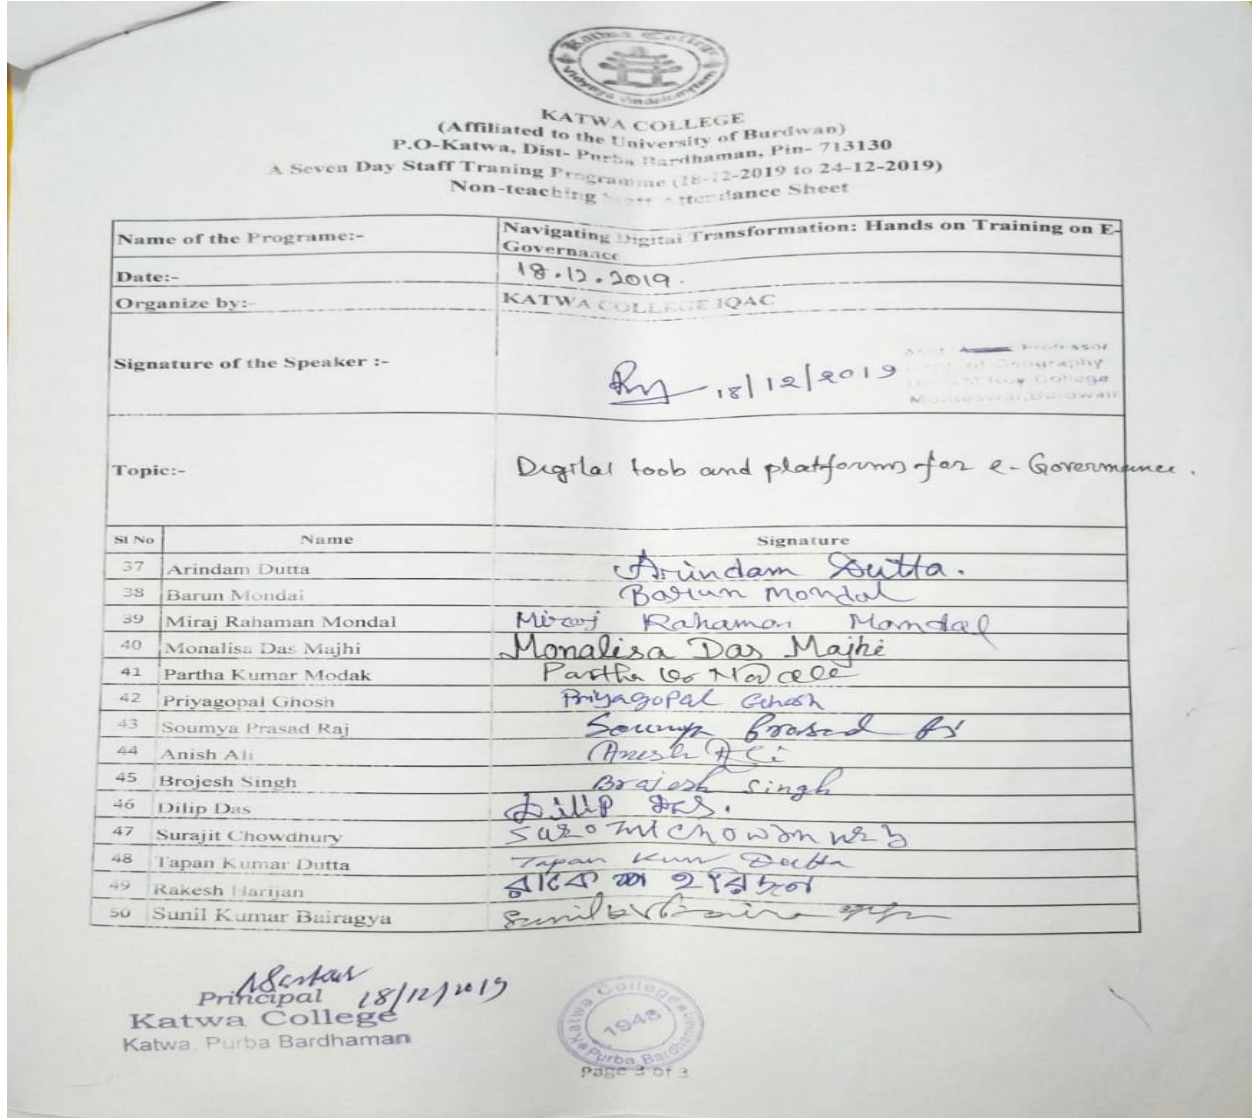 Katwa College
KATWA COLLEGE
(Affiliated to the University of Burdwan)
P.O-Katwa, Dist- Purba Bardhaman, Pin- 713130
A Seven Day Staff Traning Programme (18-12-2019 to 24-12-2019)
Non-teaching Staff Attendance Sheet
Name of the Programe:- Navigating Digital Transformation: Hands on Training on E-
Governance
Date:- 18.12.2019.
Organize by:- KATWA COLLEGE IQAC
Signature of the Speaker :- 18/12/2019
Professor
Geography
Roy College
Burdwan
Topic:- Digital tools and platforms for e-Governance.
Sl No Name Signature
37 Arindam Dutta Arindam Dutta.
38 Barun Mondal Barun Mondal
39 Miraj Rahaman Mondal Miraj Rahaman Mondal
40 Monalisa Das Majhi Monalisa Das Majhi
41 Partha Kumar Modak Partha
42 Priyagopal Ghosh Priyagopal Ghosh
43 Soumya Prasad Raj Soumya Prasad
44 Anish Ali Anish Ali
45 Brojesh Singh Brajesh Singh
46 Dilip Das Dilip Das.
47 Surajit Chowdhury
48 Tapan Kumar Dutta Tapan Kumar Dutta
49 Rakesh Harijan রাকেশ হরিজন
50 Sunil Kumar Bairagya Sunil
18/12/2019
Principal
Katwa College
Katwa, Purba Bardhaman
Katwa College
1948
Purba Bardhaman
Page 3 of 3